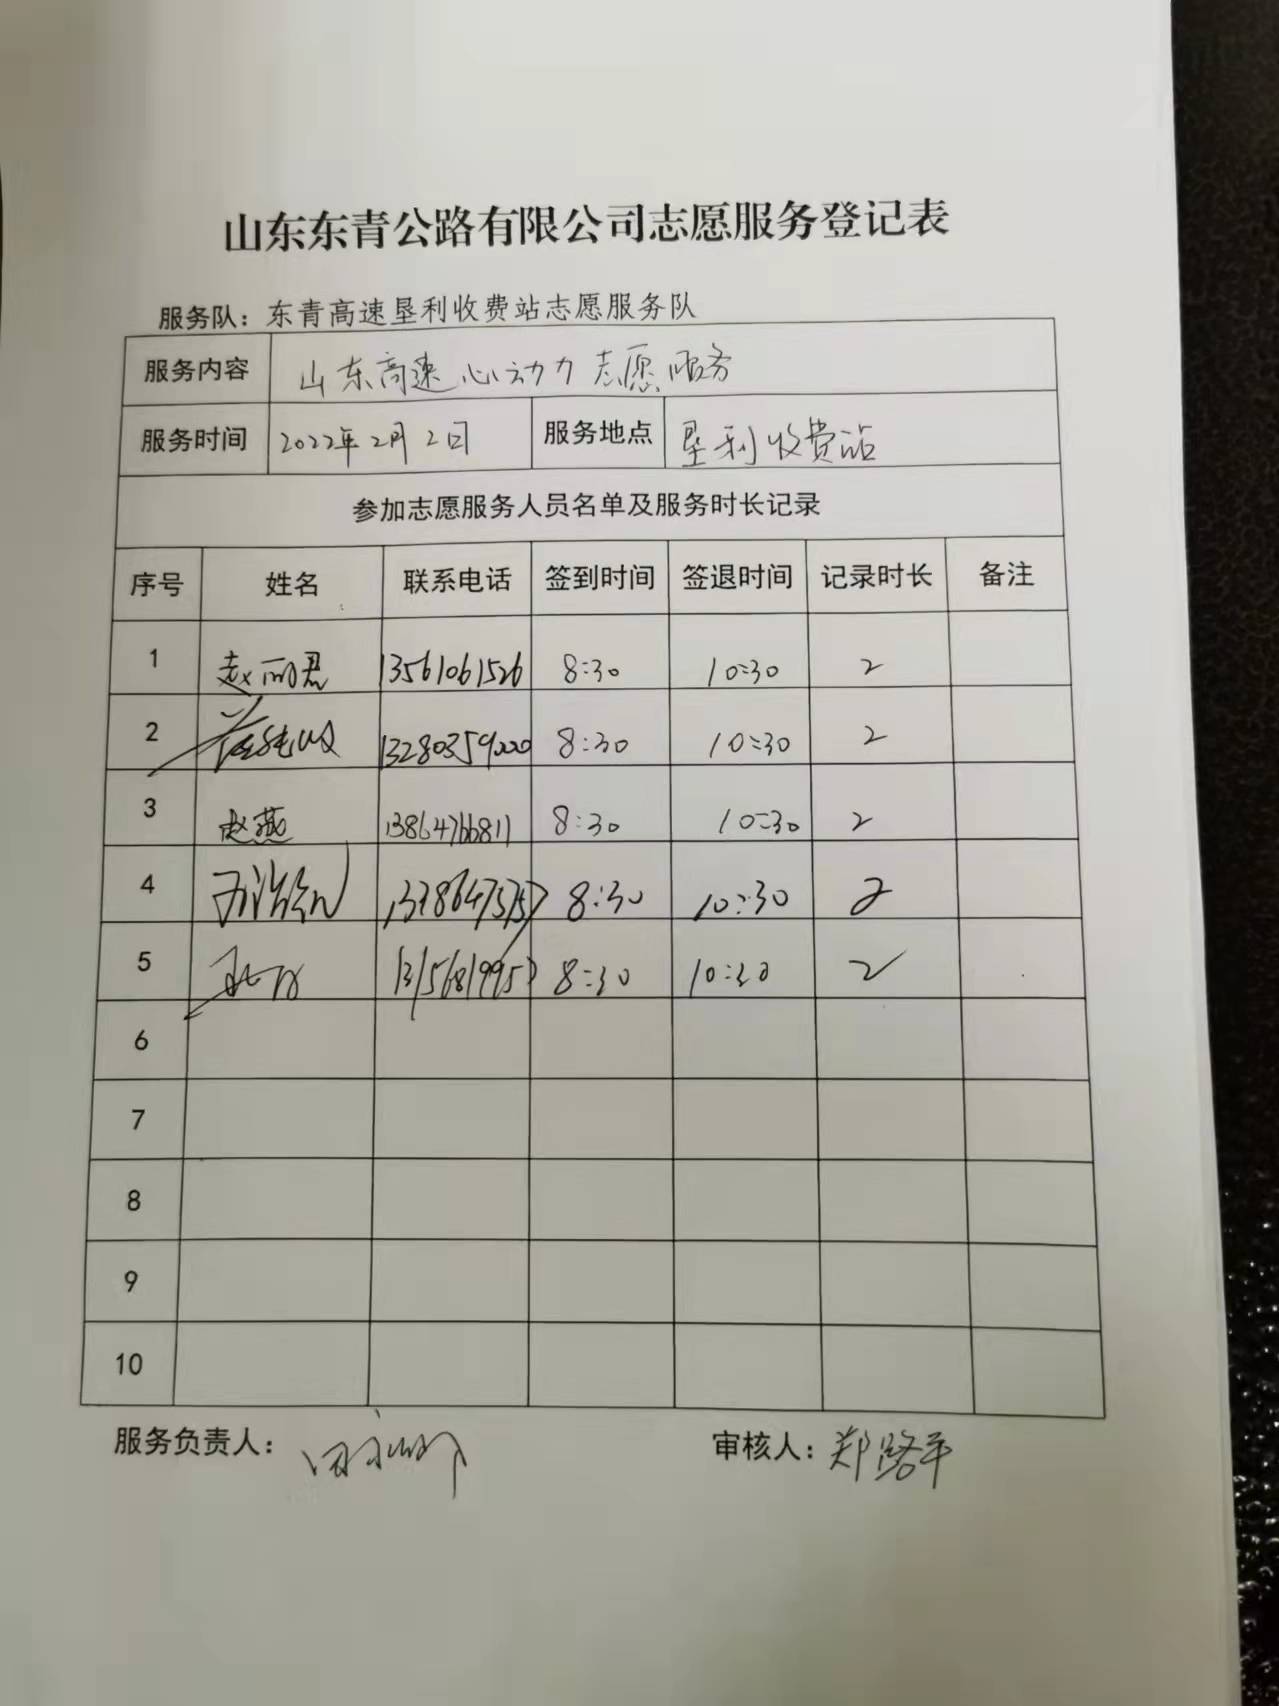 山东东青公路有限公司志愿服务登记表
服务队：东青高速垦利收费站志愿服务队
服务内容 山东高速心动力志愿服务
服务时间 2022年2月2日 服务地点 垦利收费站
参加志愿服务人员名单及服务时长记录
序号 姓名 联系电话 签到时间 签退时间 记录时长 备注
1 赵丽君 13561061526 8:30 10:30 2
2 13280359220 8:30 10:30 2
3 赵燕 13864766811 8:30 10:30 2
4 8:30 10:30 2
5 8:30 10:30 2
6
7
8
9
10
服务负责人： 审核人：郑路平